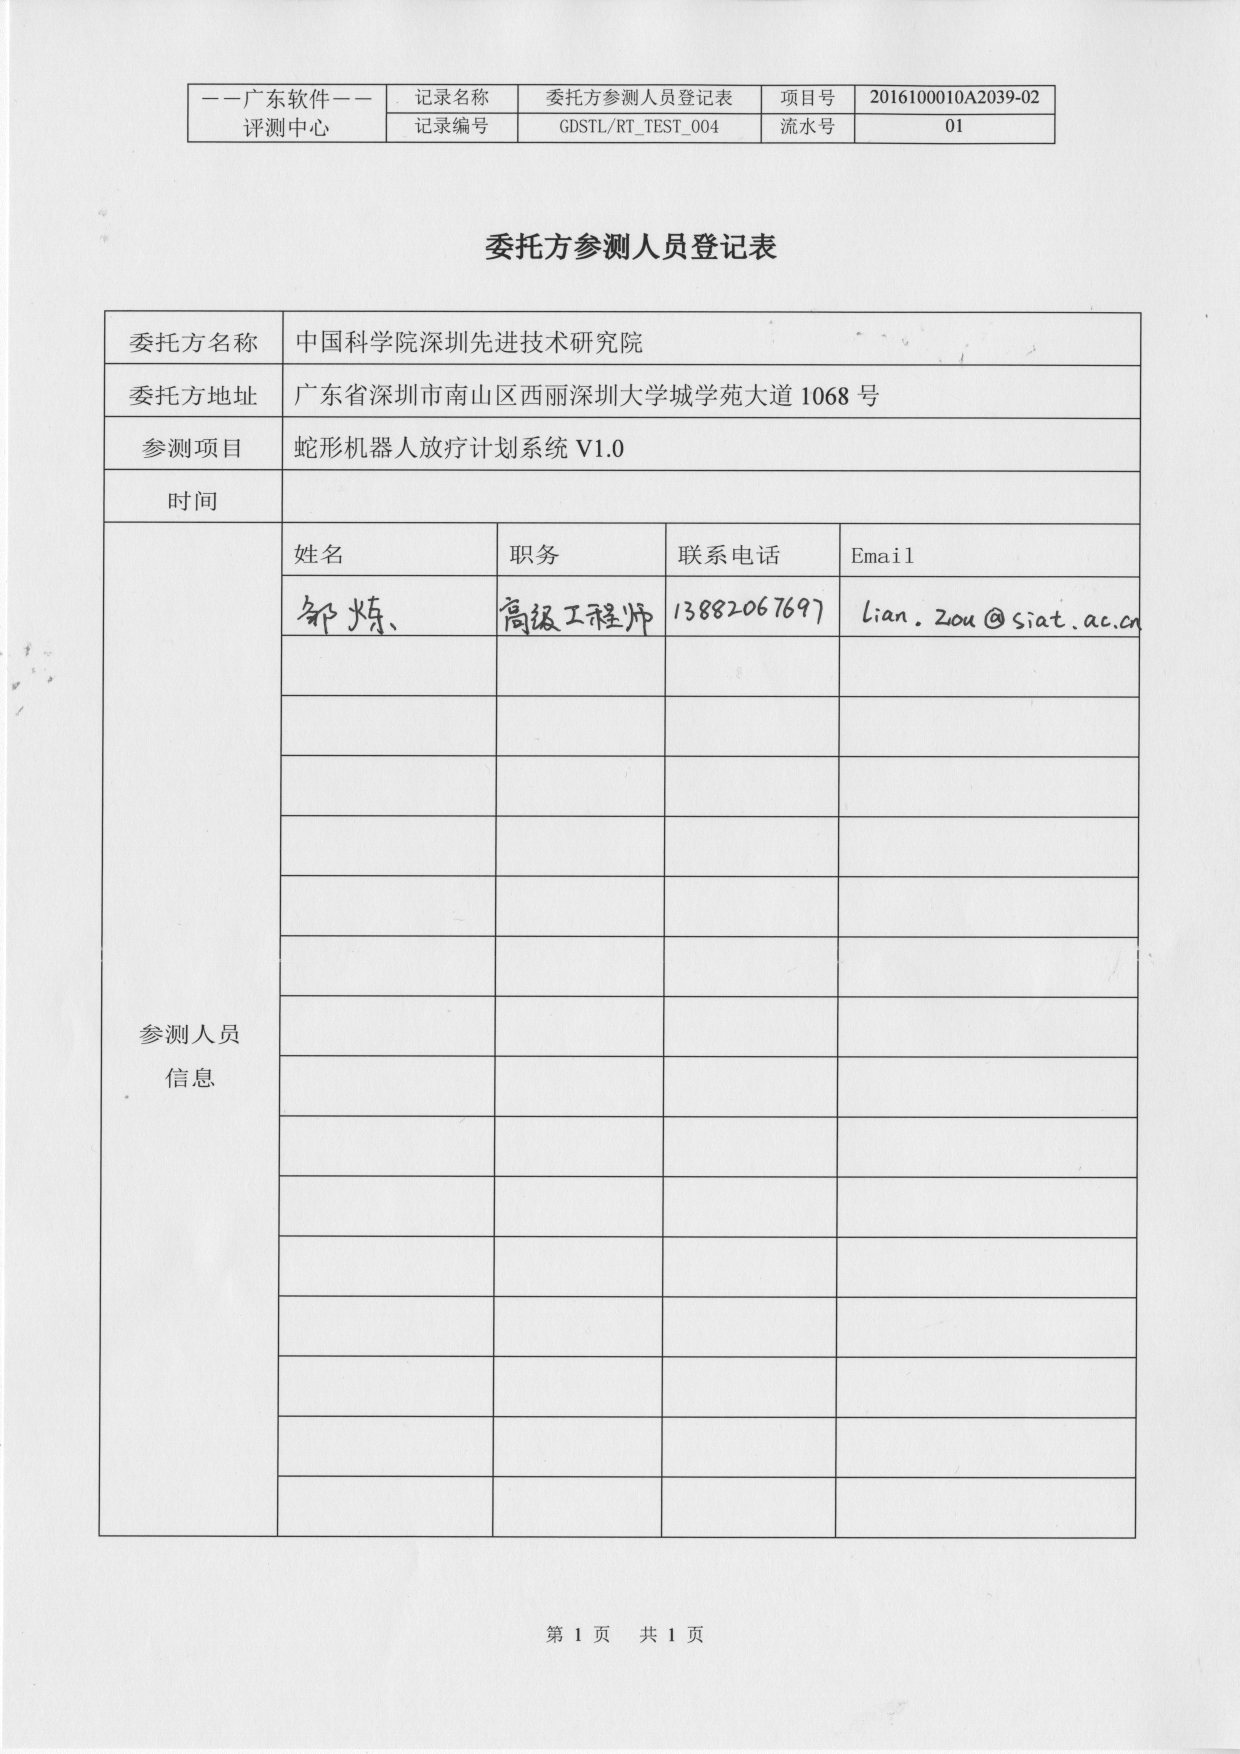 ——广东软件—— 记录名称 委托方参测人员登记表 项目号 2016100010A2039-02
评测中心 记录编号 GDSTL/RT_TEST_004 流水号 01
委托方参测人员登记表
委托方名称 中国科学院深圳先进技术研究院
委托方地址 广东省深圳市南山区西丽深圳大学城学苑大道 1068 号
参测项目 蛇形机器人放疗计划系统 V1.0
时间
姓名 职务 联系电话 Email
邹炼、 高级工程师 13882067697 lian.zou@siat.ac.cn
参测人员
信息
第 1 页 共 1 页